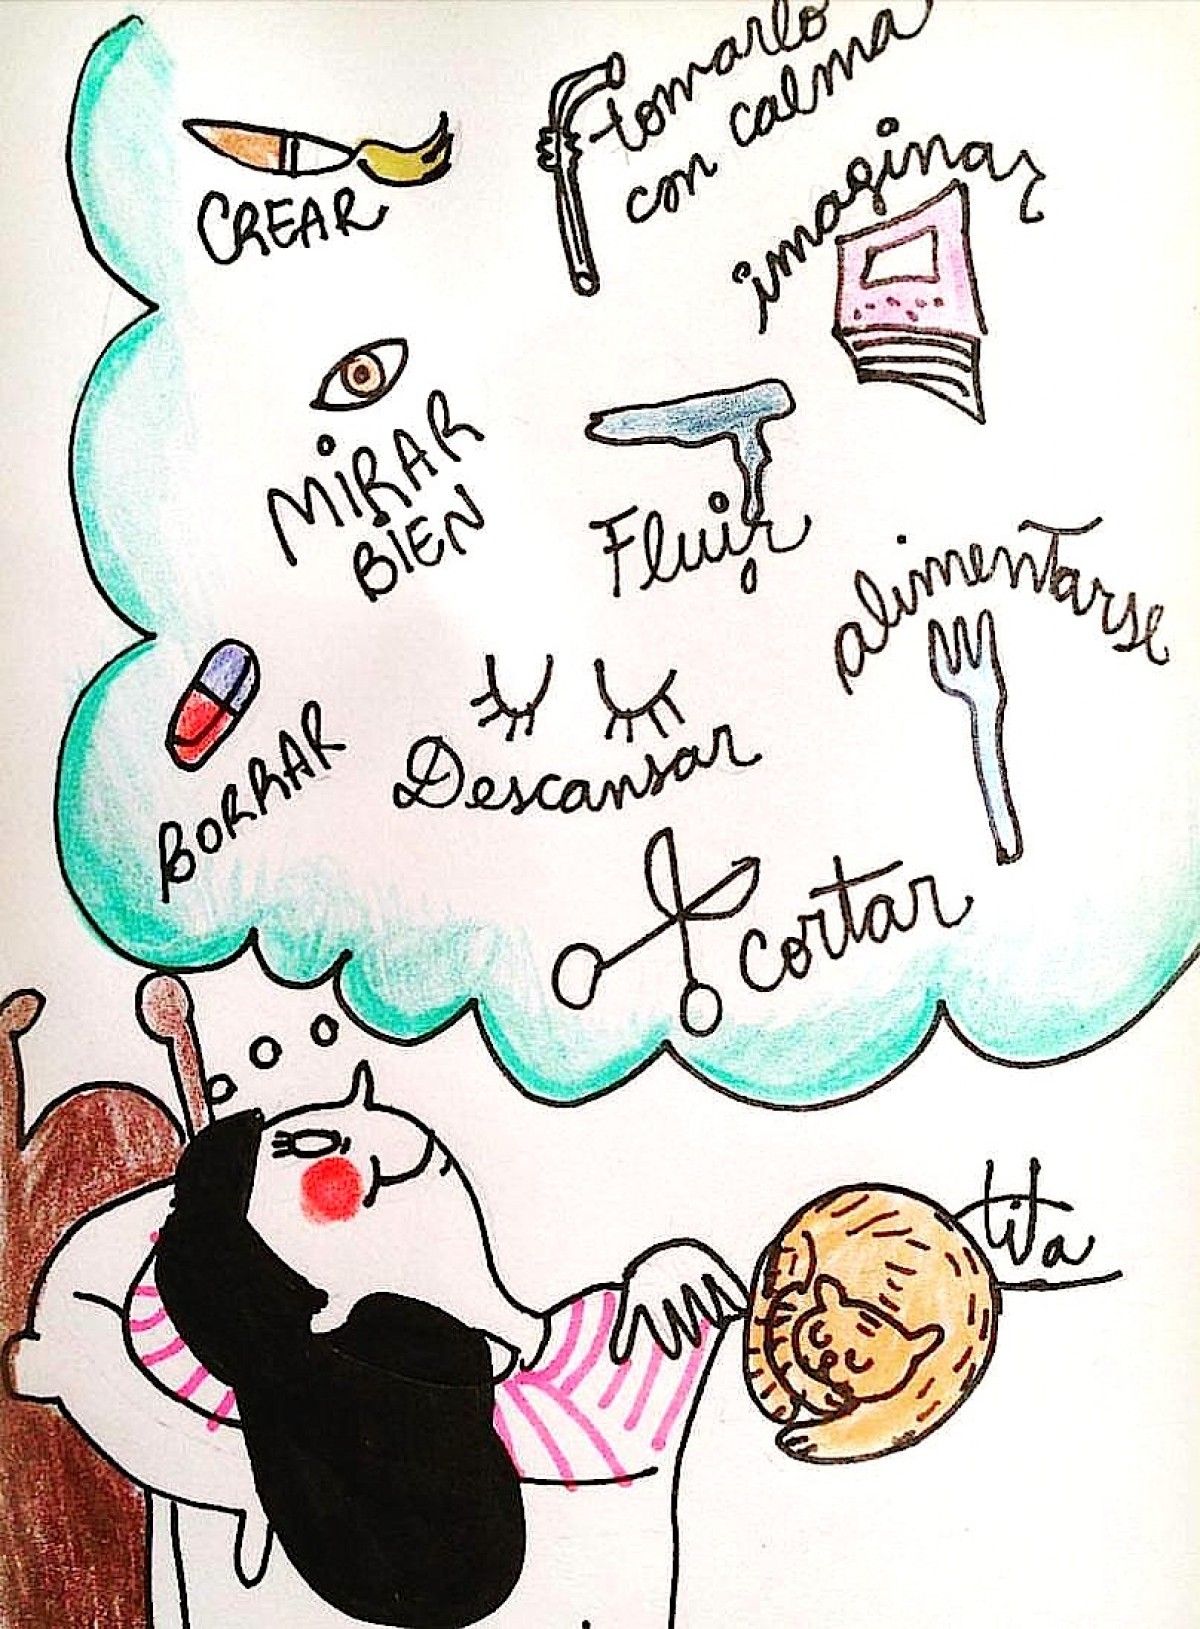 CREAR
tomarlo
con calma
imaginar
MiRAR
BIEN
Fluir
alimentarse
BORRAR
Descansar
cortar
tita